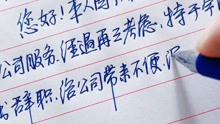 您好!本人因
公司服务.经过再三考虑,特于
辞职,给公司带来不便,深